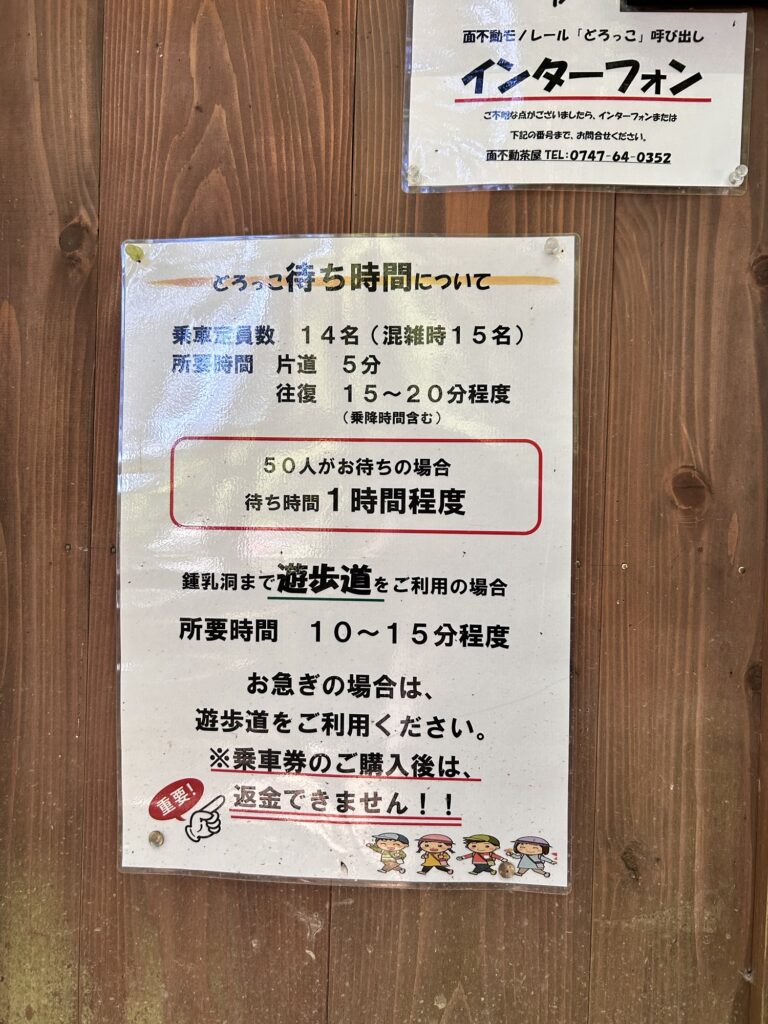 面不動モノレール「どろっこ」呼び出し
インターフォン
ご不明な点がございましたら、インターフォンまたは
下記の番号まで、お問合せください。
面不動茶屋 TEL:0747-64-0352
どろっこ待ち時間について
乗車定員数 14名(混雑時15名)
所要時間 片道 5分
往復 15~20分程度
(乗降時間含む)
50人がお待ちの場合
待ち時間1時間程度
鍾乳洞まで遊歩道をご利用の場合
所要時間 10~15分程度
お急ぎの場合は、
遊歩道をご利用ください。
※乗車券のご購入後は、
重要!
返金できません!!